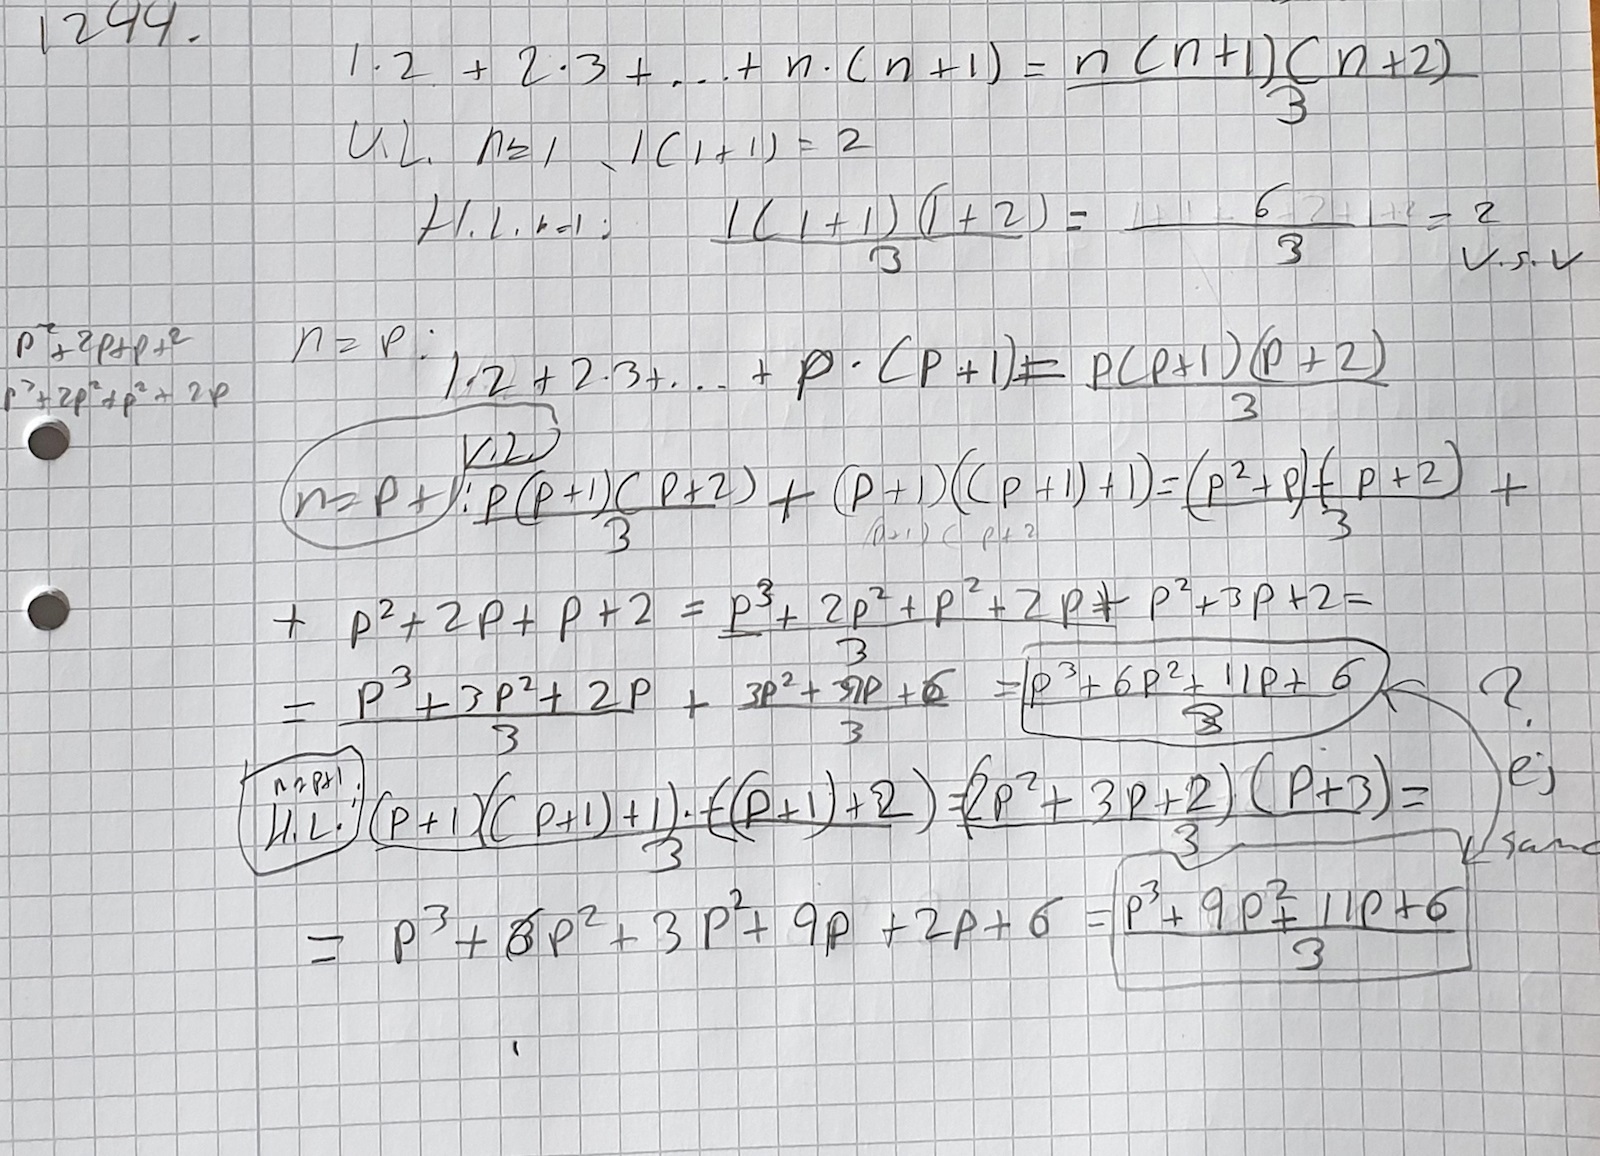 1244.
1·2 + 2·3 + ... + n·(n+1) = n(n+1)(n+2)/3
V.L. n=1 1(1+1) = 2
H.L. n=1: 1(1+1)(1+2)/3 = 6/3 = 2
V.S.V
p²+2p+p+2
p³+2p²+p²+2p
n = p:
1·2 + 2·3 + ... + p·(p+1) = p(p+1)(p+2)/3
V.L.
n=p+1: p(p+1)(p+2)/3 + (p+1)((p+1)+1) = (p²+p)(p+2)/3 +
(p+1)(p+2
+ p²+2p+p+2 = p³+2p²+p²+2p/3 + p²+3p+2 =
= p³+3p²+2p/3 + 3p²+9p+6/3 = p³+6p²+11p+6/3 ?
ej
samma
n=p+1:
H.L.: (p+1)((p+1)+1)·((p+1)+2)/3 = (p²+3p+2)(p+3)/3 =
= p³+6p²+3p²+9p+2p+6 = p³+9p²+11p+6/3